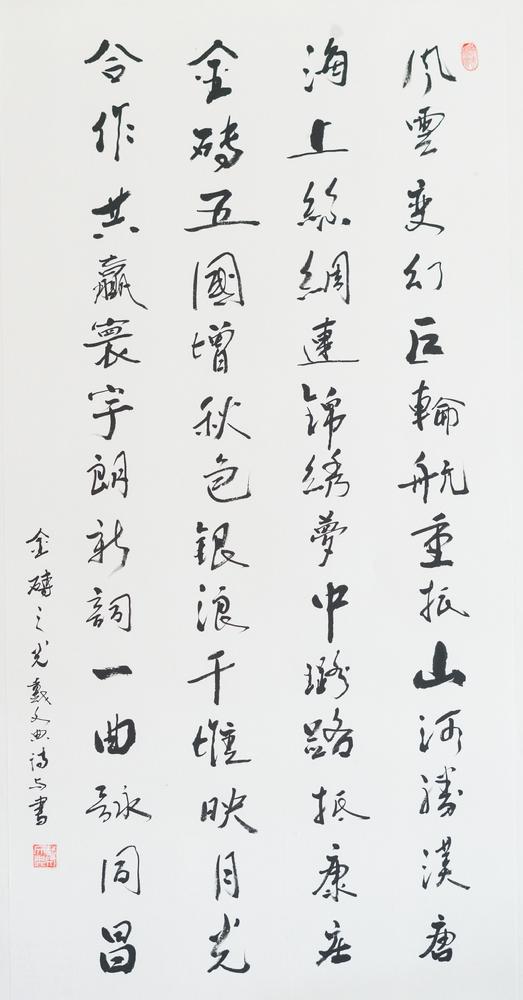 風雲变幻巨輪航重振山河勝漢唐
海上絲綢連錦綉夢中路抵康庄
金磚五國增秋色銀浪千堆映月光
合作共贏寰宇朗新詞一曲詠同昌
金磚之光戴文典詩与書